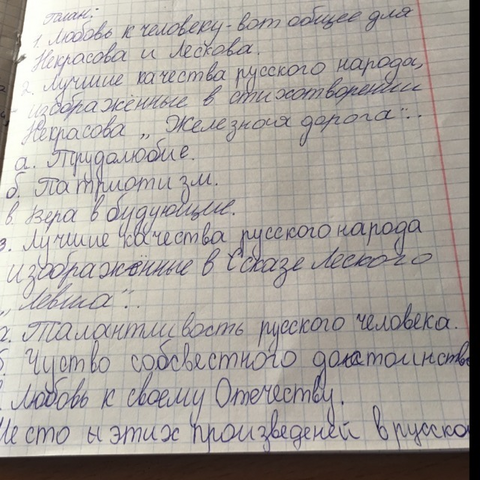 План:
1. Любовь к человеку - вот общее для
Некрасова и Лескова.
2. Лучшие качества русского народа,
изображённые в стихотворении
Некрасова „Железная дорога":.
а. Трудолюбие.
б. Патриотизм.
в Вера в будующие.
3. Лучшие качества русского народа
изображённые в Сказе Леского
„Левша":.
а. Талантливость русского человека.
б Чуство собсвестного достоинство
. Любовь к своему Отечеству.
Место ы этих произведеней в русско